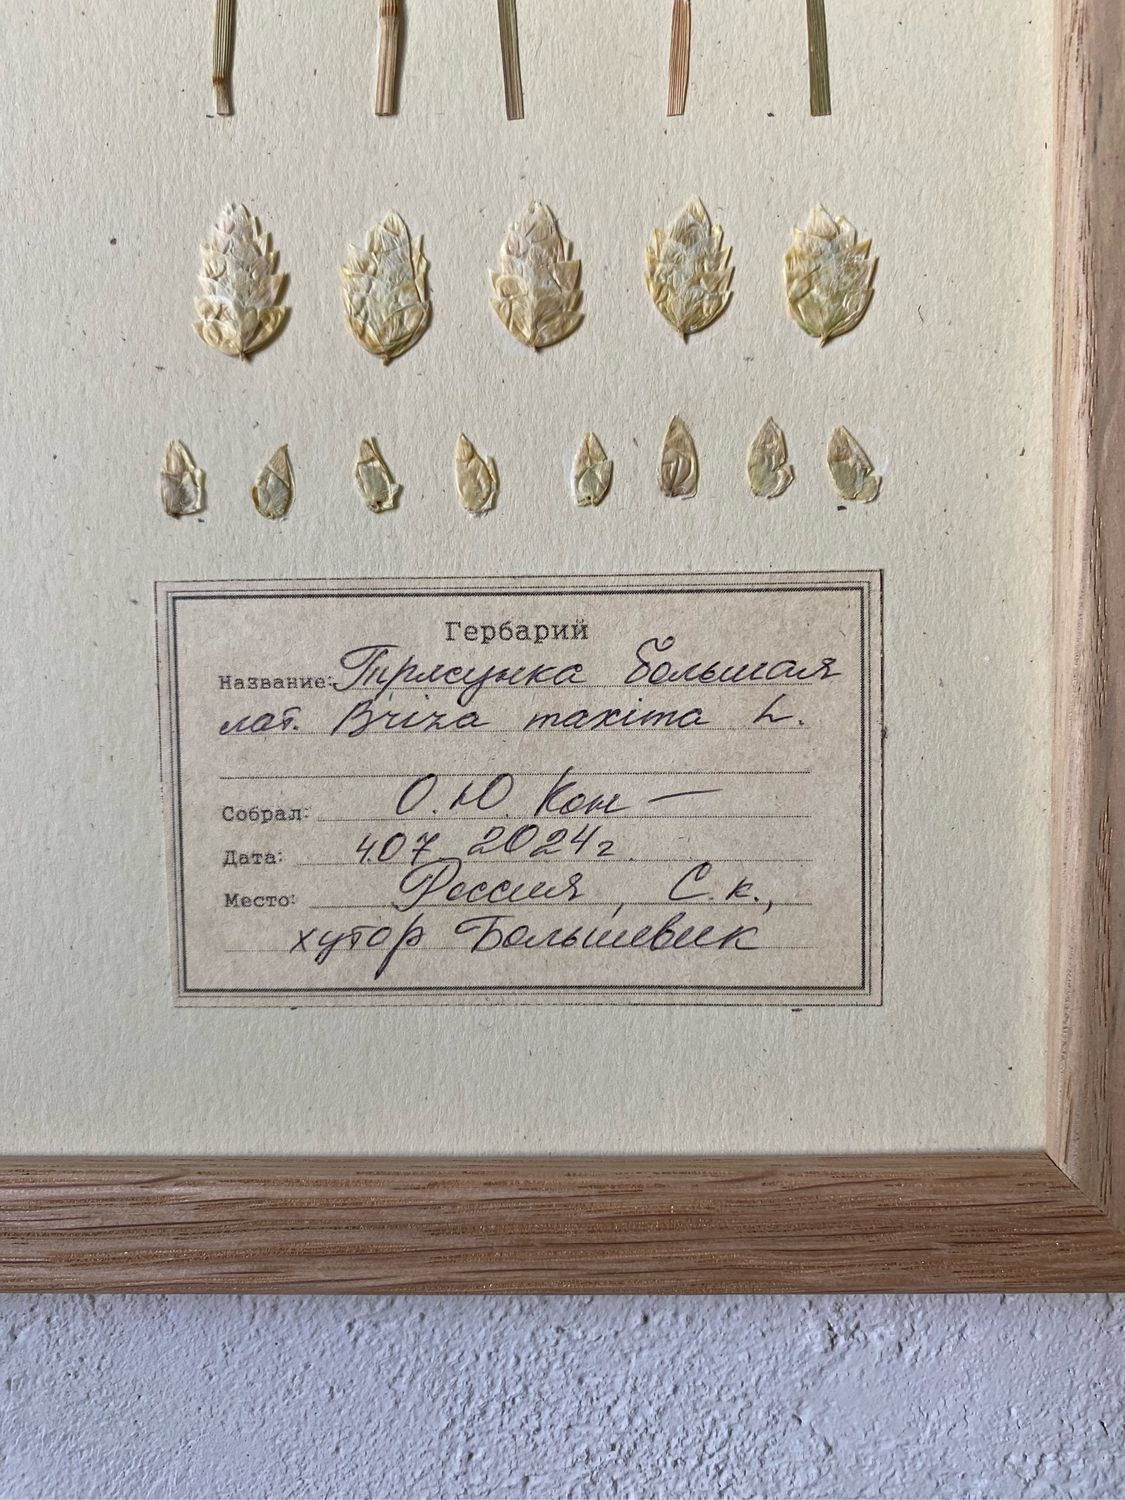 Гербарий
Название: Трясунка большая
лат. Briza maxima L.
Собрал: О.Ю. Кон —
Дата: 4.07 2024г.
Место: Россия, С.к.,
хутор Большевик